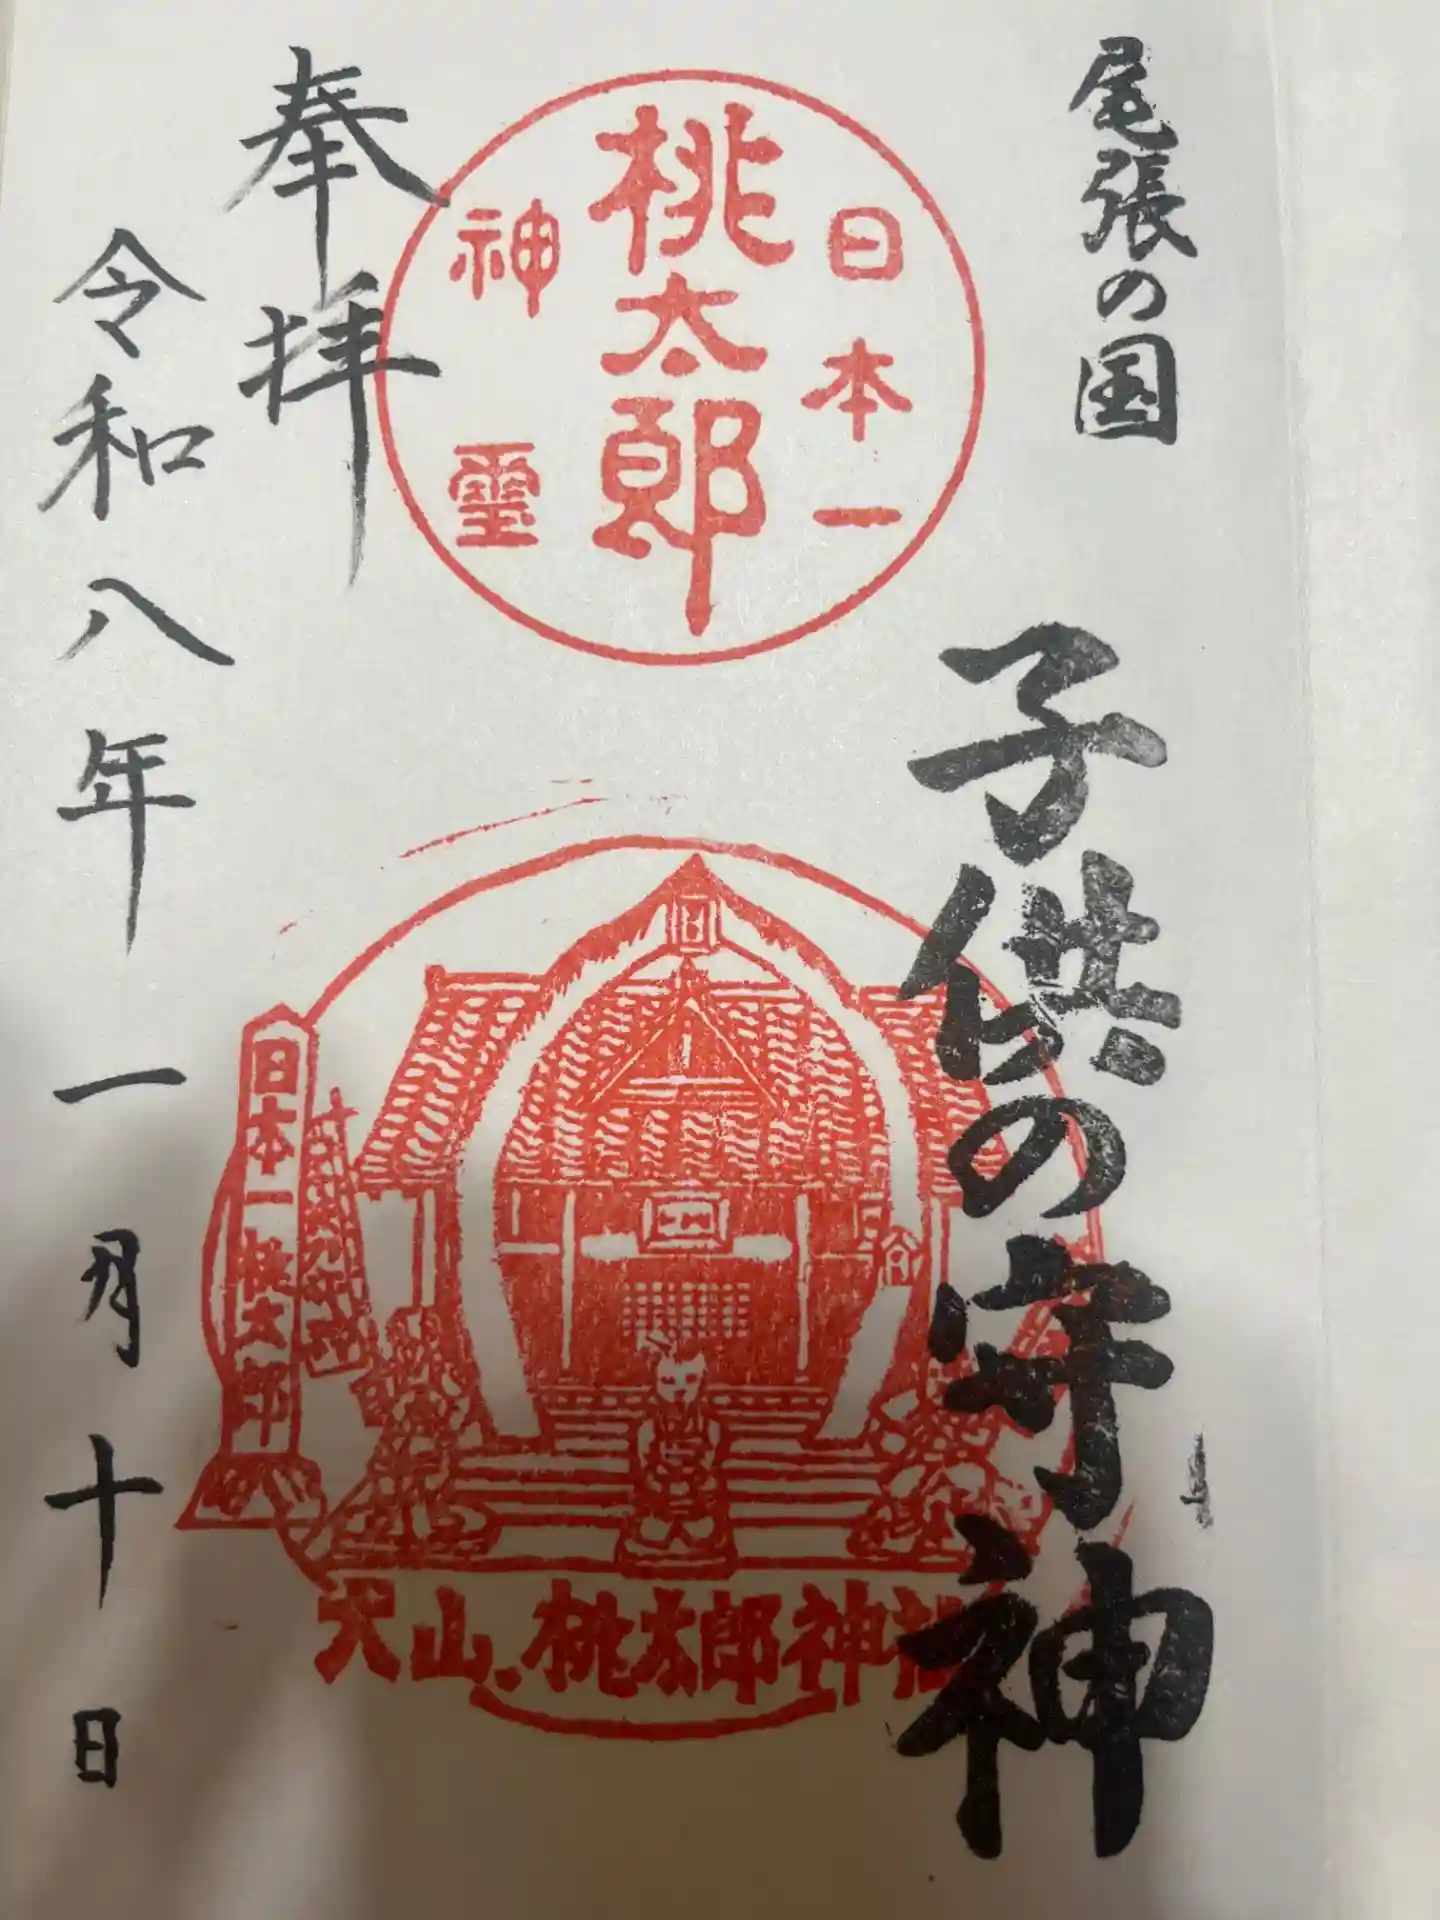 尾張の国
子供の守神
日本一
桃太郎
神璽
奉拝
令和八年一月十日
日本一桃太郎
犬山、桃太郎神社